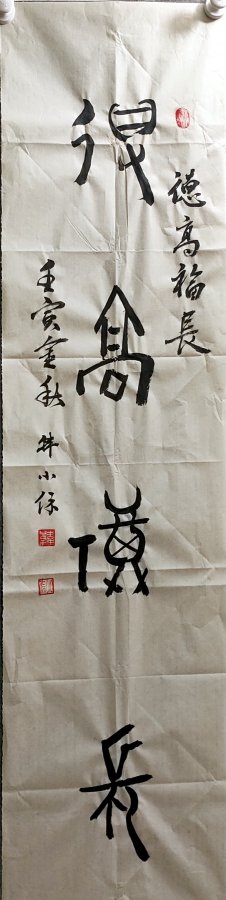 德高福長
德高福長
壬寅金秋 韩小保